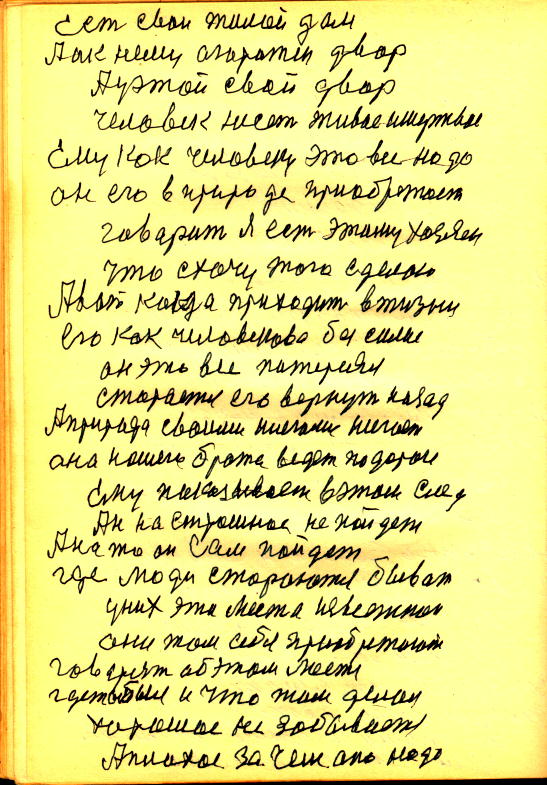 Ест свои жилой дом
Аак нему агаражен двор
Аужтой свой двор
человек несет живое имертвое
Ему как человеку это все надо
он его в природе приобретает
говарит я ест этаму хозяен
что схочу того сделаю
Авот когда приходит вжизни
его как человеково бессилие
он это все патерял
старается его вернут назад
Априрада своими нигами
она нашего брата ведет подароги
Ему паказывает вэтом след
Ан на страшное не пойдет
Ана то он сам пойдет
где люди стараются быват
уних эти места известнои
они там себя приобретают
говорят аб этом месте
гдетобыл и что там делал
харошое не забывает
Аплахое зачем ано надо